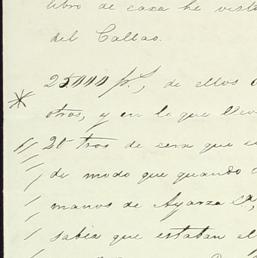 libro de caza he vista
del Callao.
25000 p.s, de ellos
otros, y en lo que
20 tros de cera que
de modo que quando
manos de Ayarza
sabia que estaban el